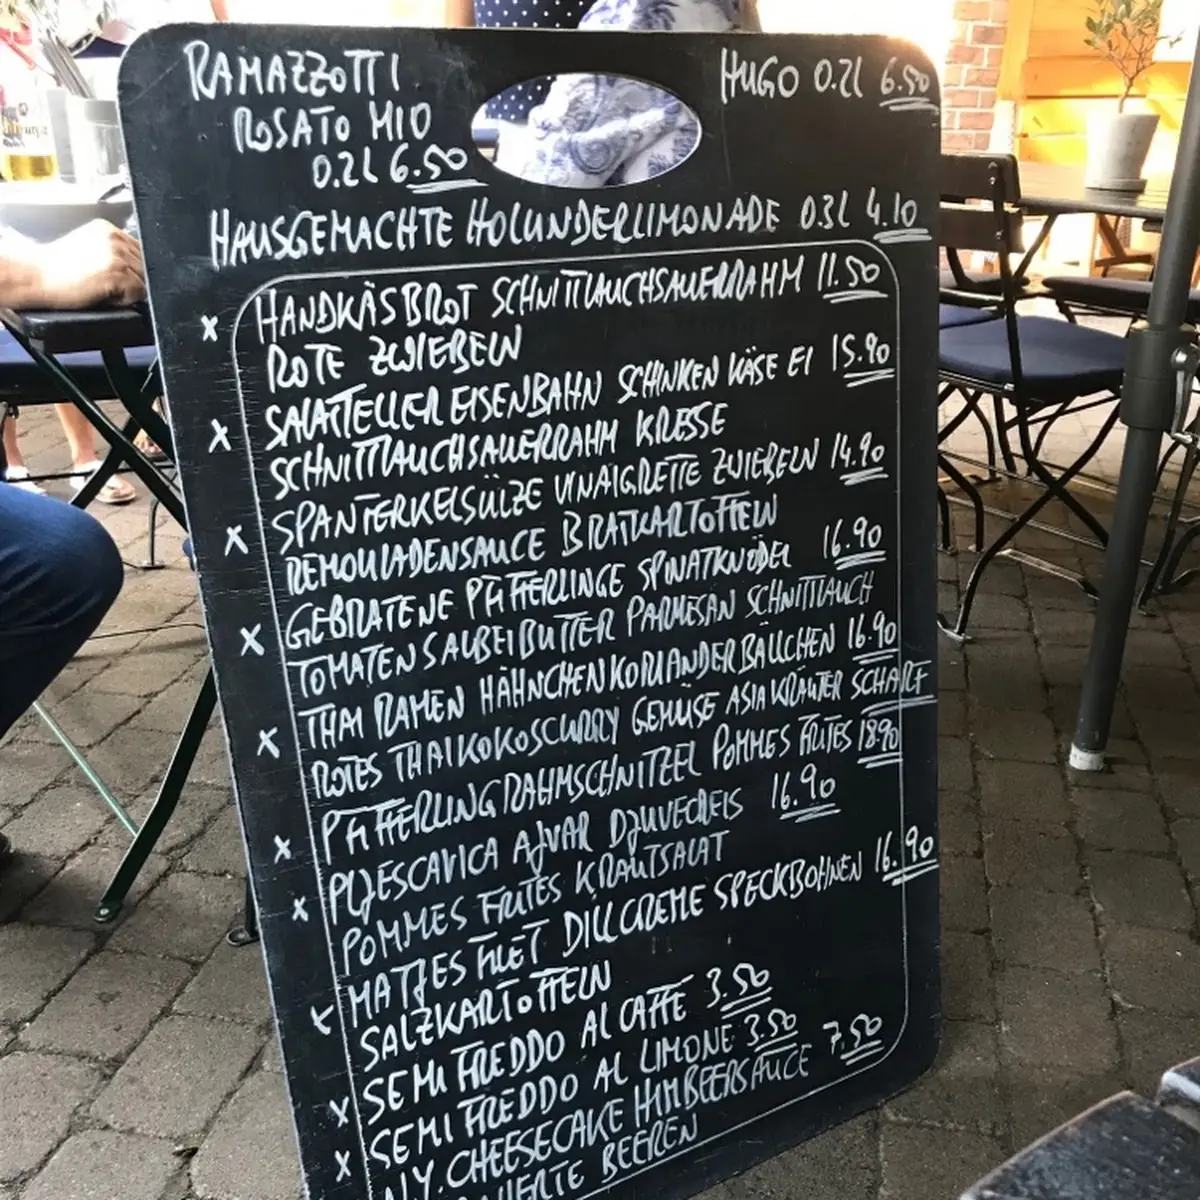 RAMAZZOTTI
ROSATO MIO
0.2L 6.50
HUGO 0.2L 6.50
HAUSGEMACHTE HOLUNDERLIMONADE 0.3L 4.10
x HANDKÄSBROT SCHNITTLAUCHSAUERRAHM 11.50
ROTE ZWIEBELN
x SALATTELLER EISENBAHN SCHINKEN KÄSE EI 15.90
SCHNITTLAUCHSAUERRAHM KRESSE
x SPANFERKELSÜLZE VINAIGRETTE ZWIEBELN 14.90
REMOULADENSAUCE BRATKARTOFFELN
x GEBRATENE PFIFFERLINGE SPINATKNÖDEL 16.90
TOMATEN SALBEIBUTTER PARMESAN SCHNITTLAUCH
x THAI RAMEN HÄHNCHENKORIANDERBÄLLCHEN 16.90
ROTES THAIKOKOSCURRY GEMÜSE ASIAKRÄUTER SCHARF
x PFIFFERLINGRAHMSCHNITZEL POMMES FRITES 18.90
x PLJESCAVICA AJVAR DJUVECREIS 16.90
POMMES FRITES KRAUTSALAT
x MATJES FILET DILLCREME SPECKBOHNEN 16.90
SALZKARTOFFELN
x SEMI FREDDO AL CAFFE 3.50
x SEMI FREDDO AL LIMONE 3.50
N.Y. CHEESECAKE HIMBEERSAUCE 7.50
BEEREN